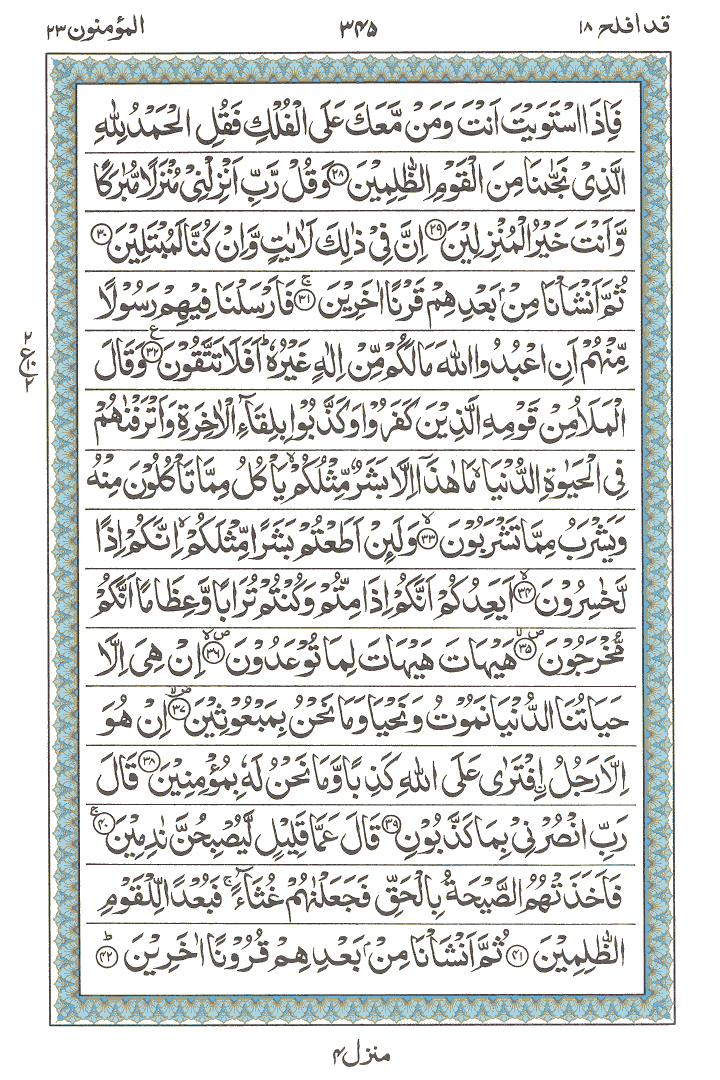 قد افلح ۱۸ ۳۴۵ المؤمنون ۲۳
فَاِذَا اسْتَوَيْتَ اَنْتَ وَمَنْ مَّعَكَ عَلَى الْفُلْكِ فَقُلِ الْحَمْدُ لِلّٰهِ
الَّذِىْ نَجّٰىنَا مِنَ الْقَوْمِ الظّٰلِمِيْنَ ۲۸ وَقُلْ رَّبِّ اَنْزِلْنِىْ مُنْزَلًا مُّبٰرَكًا
وَّاَنْتَ خَيْرُ الْمُنْزِلِيْنَ ۲۹ اِنَّ فِىْ ذٰلِكَ لَاٰيٰتٍ وَّاِنْ كُنَّا لَمُبْتَلِيْنَ ۳۰
ثُمَّ اَنْشَاْنَا مِنْۢ بَعْدِهِمْ قَرْنًا اٰخَرِيْنَ ۚ ۳۱ فَاَرْسَلْنَا فِيْهِمْ رَسُوْلًا
مِّنْهُمْ اَنِ اعْبُدُوا اللّٰهَ مَا لَكُمْ مِّنْ اِلٰهٍ غَيْرُهٗ ؕ اَفَلَا تَتَّقُوْنَ ۳۲ ع وَقَالَ
۲ ع ۱۰ ۲
الْمَلَاُ مِنْ قَوْمِهِ الَّذِيْنَ كَفَرُوْا وَكَذَّبُوْا بِلِقَآءِ الْاٰخِرَةِ وَاَتْرَفْنٰهُمْ
فِى الْحَيٰوةِ الدُّنْيَا ۙ مَا هٰذَآ اِلَّا بَشَرٌ مِّثْلُكُمْ ۙ يَاْكُلُ مِمَّا تَاْكُلُوْنَ مِنْهُ
وَيَشْرَبُ مِمَّا تَشْرَبُوْنَ ۙ ۳۳ وَلَئِنْ اَطَعْتُمْ بَشَرًا مِّثْلَكُمْ ۙ اِنَّكُمْ اِذًا
لَّخٰسِرُوْنَ ۙ ۳۴ اَيَعِدُكُمْ اَنَّكُمْ اِذَا مِتُّمْ وَكُنْتُمْ تُرَابًا وَّعِظَامًا اَنَّكُمْ
مُّخْرَجُوْنَ ۳۵ هَيْهَاتَ هَيْهَاتَ لِمَا تُوْعَدُوْنَ ۳۶ اِنْ هِىَ اِلَّا
حَيَاتُنَا الدُّنْيَا نَمُوْتُ وَنَحْيَا وَمَا نَحْنُ بِمَبْعُوْثِيْنَ ۳۷ اِنْ هُوَ
اِلَّا رَجُلُ اِۨفْتَرٰى عَلَى اللّٰهِ كَذِبًا وَّمَا نَحْنُ لَهٗ بِمُؤْمِنِيْنَ ۳۸ قَالَ
رَبِّ انْصُرْنِىْ بِمَا كَذَّبُوْنِ ۳۹ قَالَ عَمَّا قَلِيْلٍ لَّيُصْبِحُنَّ نٰدِمِيْنَ ۚ ۴۰
فَاَخَذَتْهُمُ الصَّيْحَةُ بِالْحَقِّ فَجَعَلْنٰهُمْ غُثَآءً ۚ فَبُعْدًا لِّلْقَوْمِ
الظّٰلِمِيْنَ ۴۱ ثُمَّ اَنْشَاْنَا مِنْۢ بَعْدِهِمْ قُرُوْنًا اٰخَرِيْنَ ؕ ۴۲
منزل ۴